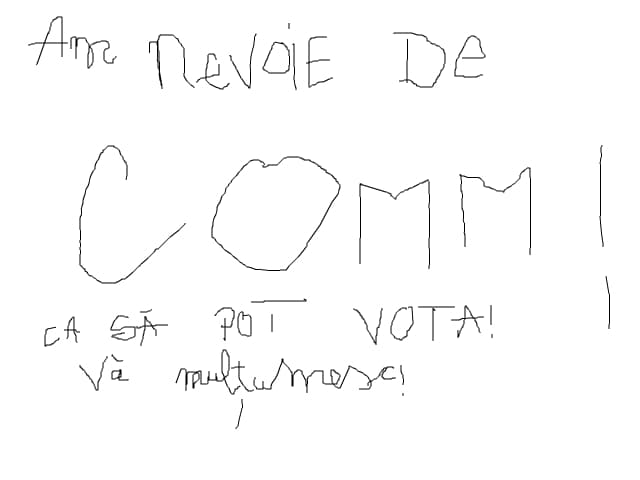 Am NEVOIE DE
COMM!
CA SĂ POT VOTA!
Vă mulțumesc!